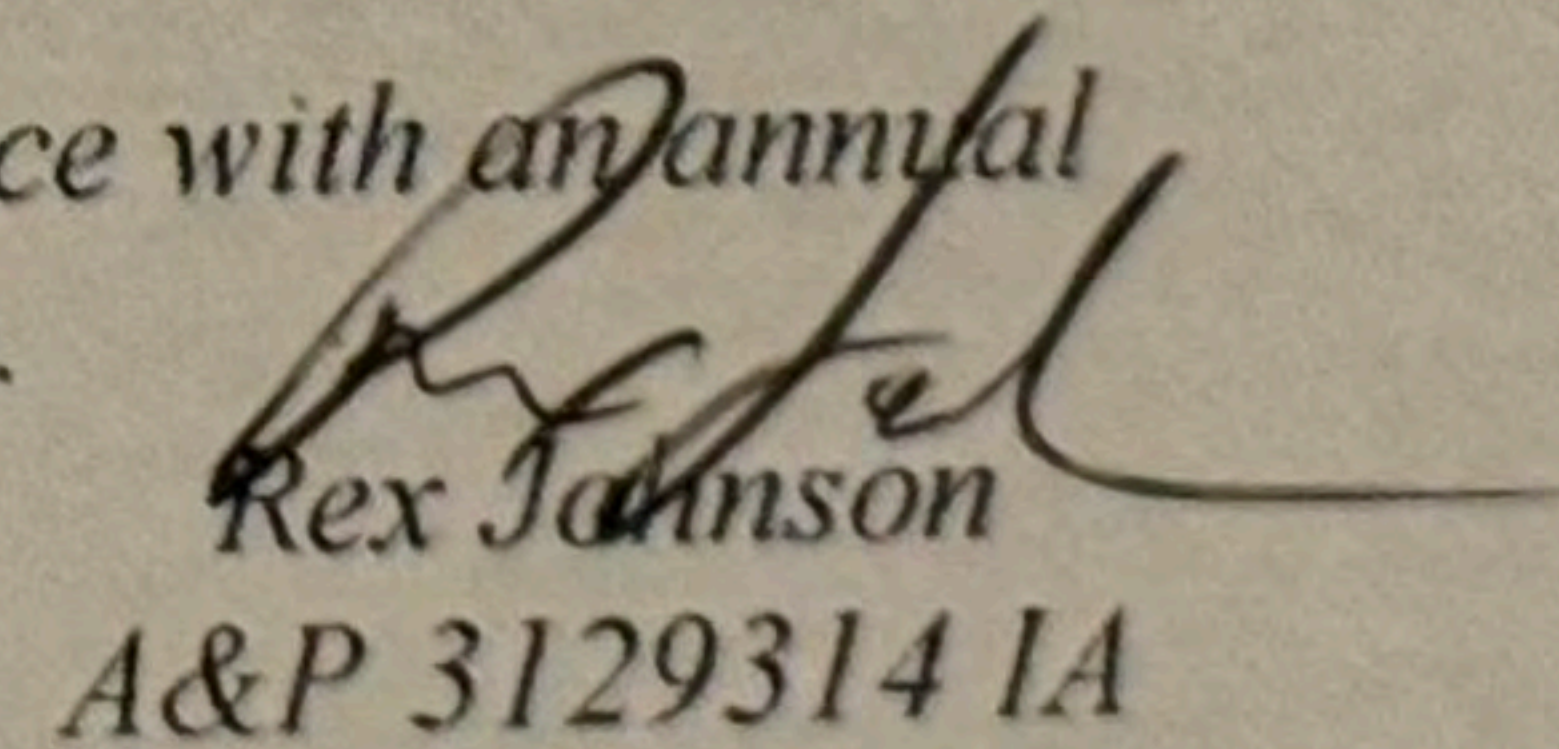 ce with an annual
Rex Johnson
A&P 3129314 IA